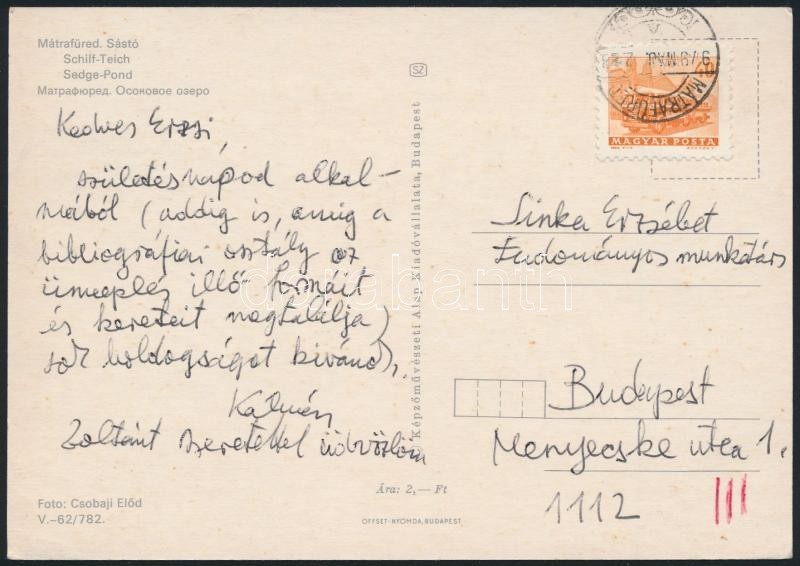 Mátrafüred. Sástó
Schilf-Teich
Sedge-Pond
Матрафюред. Осоковое озеро
Kedves Erzsi
születésnapod alkal-
mából (addig is, amig a
bibliográfiai osztály az
ünneplés illő formáit
és kereteit megtalálja)
sok boldogságot kivánok,
Kálmán
Zoltánt szeretettel üdvözlöm
Foto: Csobaji Előd
V.–62/782.
SZ
Képzőművészeti Alap Kiadóvállalata, Budapest
Ára: 2,— Ft
OFFSET-NYOMDA, BUDAPEST
MÁTRAFÜRED
MAGYAR POSTA
Sinka Erzsébet
tudományos munkatárs
Budapest
Menyecske utca 1.
1112
darabanth